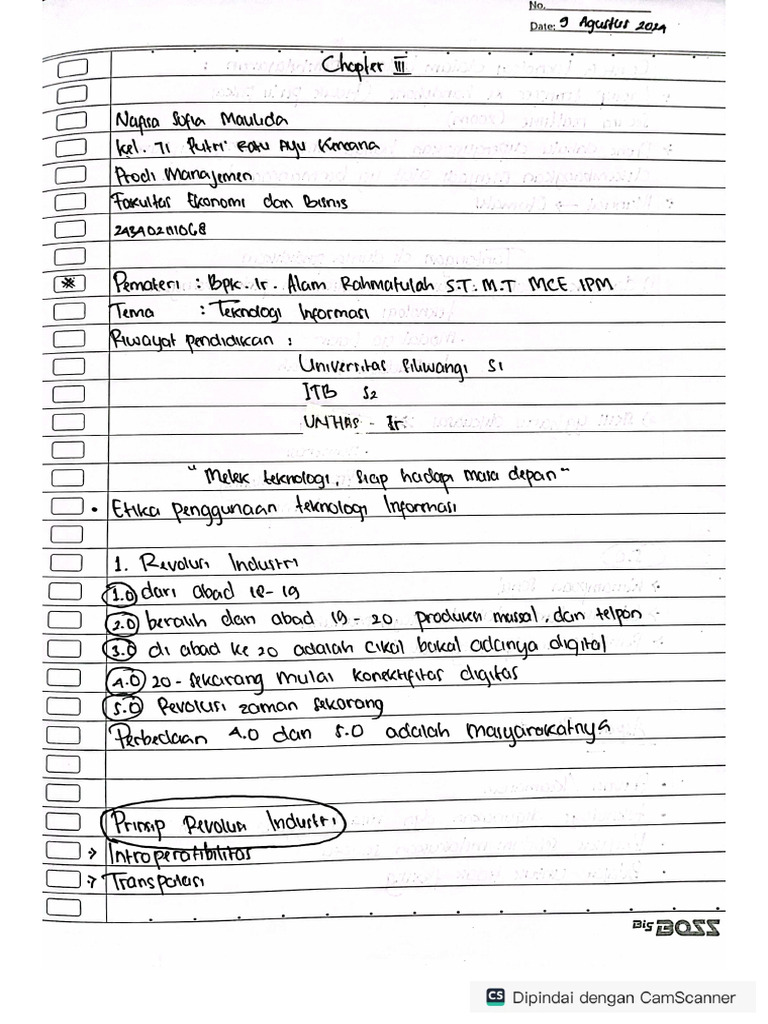 No.
Date: 9 Agustus 2024
Chapter III
Napsa Sofia Maulida
Kel. 71 Putri Ratu Ayu Kencana
Prodi Manajemen
Fakultas Ekonomi dan Bisnis
243402111068
* Pemateri : Bpk. Ir. Alam Rahmatulah S.T. M.T MCE IPM
Tema : Teknologi Informasi
Riwayat pendidikan :
Universitas Siliwangi S1
ITB S2
UNHAS - Ir
"Melek teknologi, siap hadapi masa depan"
• Etika penggunaan teknologi Informasi
1. Revolusi Industri
1.0 dari abad 18-19
2.0 beralih dari abad 19-20 produksi massal, dan telpon
3.0 di abad ke 20 adalah cikal bakal adainya digital
4.0 20-sekarang mulai konektifitas digitas
5.0 Revolusi zaman sekarang
Perbedaan 4.0 dan 5.0 adalah masyarakatnya
Prinsip Revolusi Industri
→ Introperatibilitas
→ Transpalasi
Big BOSS
CS Dipindai dengan CamScanner